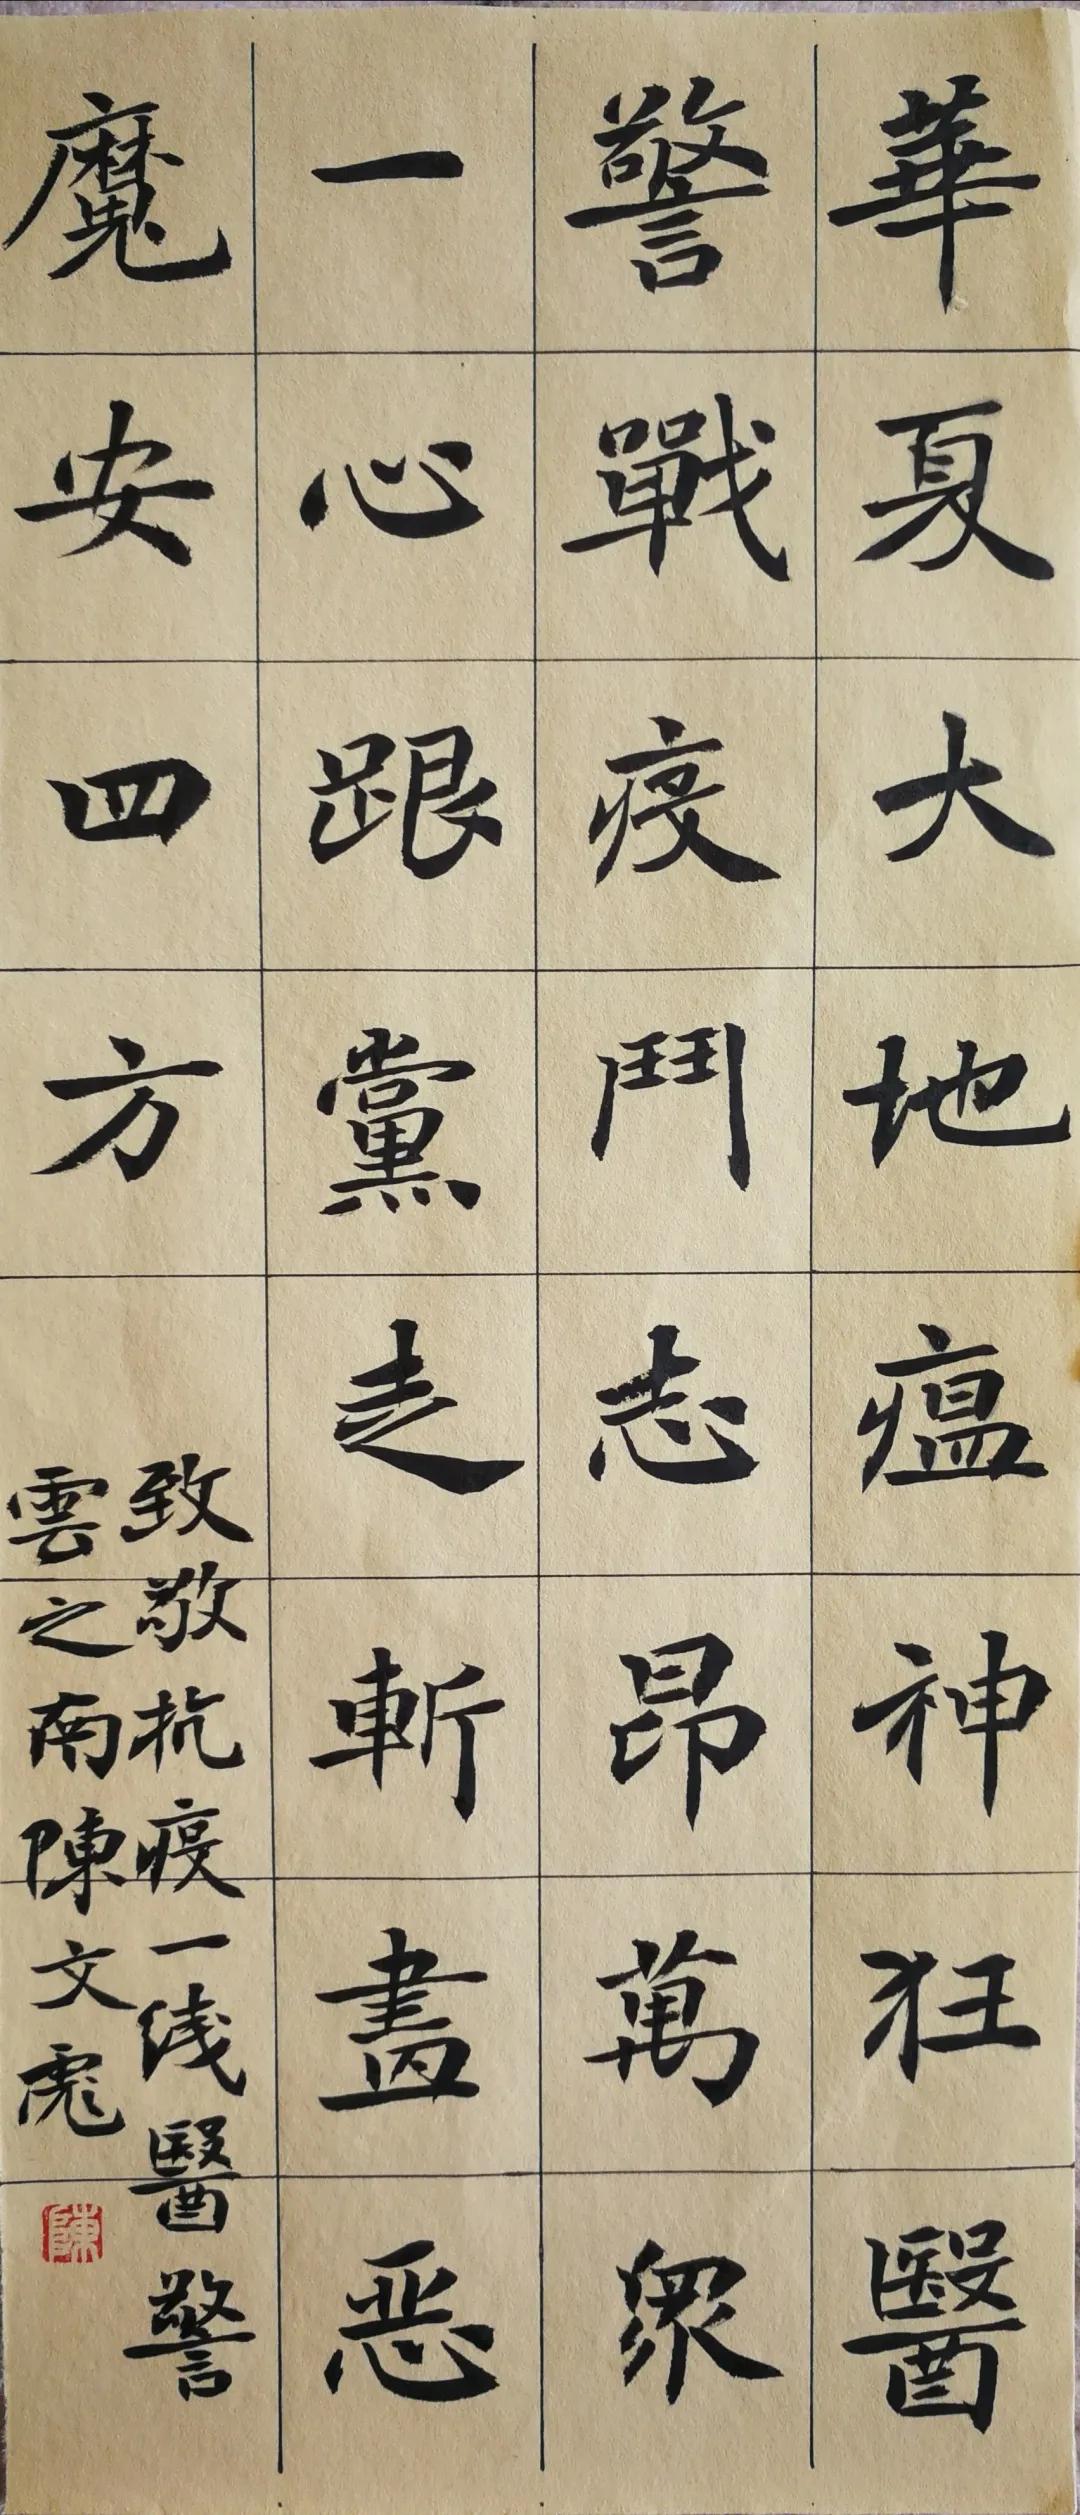 華夏大地瘟神狂醫
警戰疫鬥志昂萬眾
一心跟黨走斬盡恶
魔安四方
致敬抗疫一线醫警
雲之南陳文彪
陳